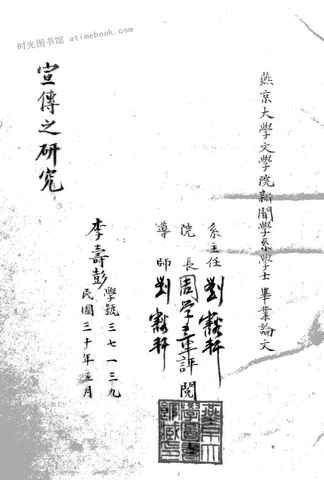 时光图书馆 atimebook.com
燕京大學文學院新聞學系學士畢業論文
系主任 劉豁軒
院長 周學章評閱
導師 劉豁軒
學號三七一三九
民國三十年五月
李壽彭
宣傳之研究